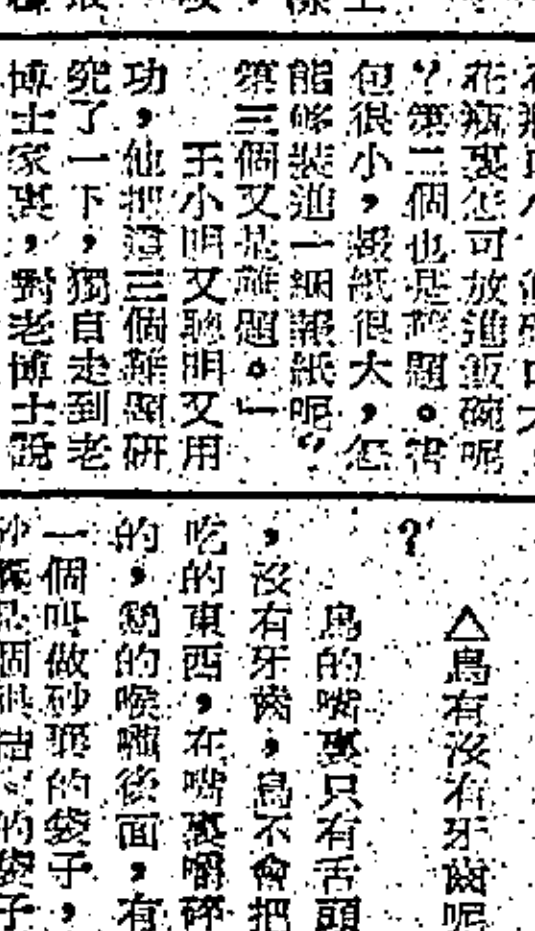 花瓶裏怎可放進飯碗呢
？第二個也是難題。書
包很小，報紙很大，怎
能够裝進一綑報紙呢？
第三個又是難題。」
王小明又聰明又用
功，他把這三個難題研
究了一下，獨自走到老
博士家裏，對老博士說
△鳥有沒有牙齒呢
？
鳥的嘴裏只有舌頭
，沒有牙齒，鳥不會把
吃的東西，在嘴裏嚼碎
的，鳥的喉嚨後面，有
一個叫做砂囊的袋子，